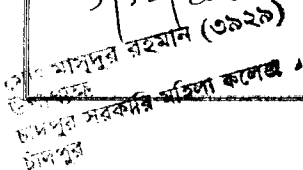 মোঃ মাসুদুর রহমান (৩৯২৯)
চাঁদপুর সরকারি মহিলা কলেজ
চাঁদপুর